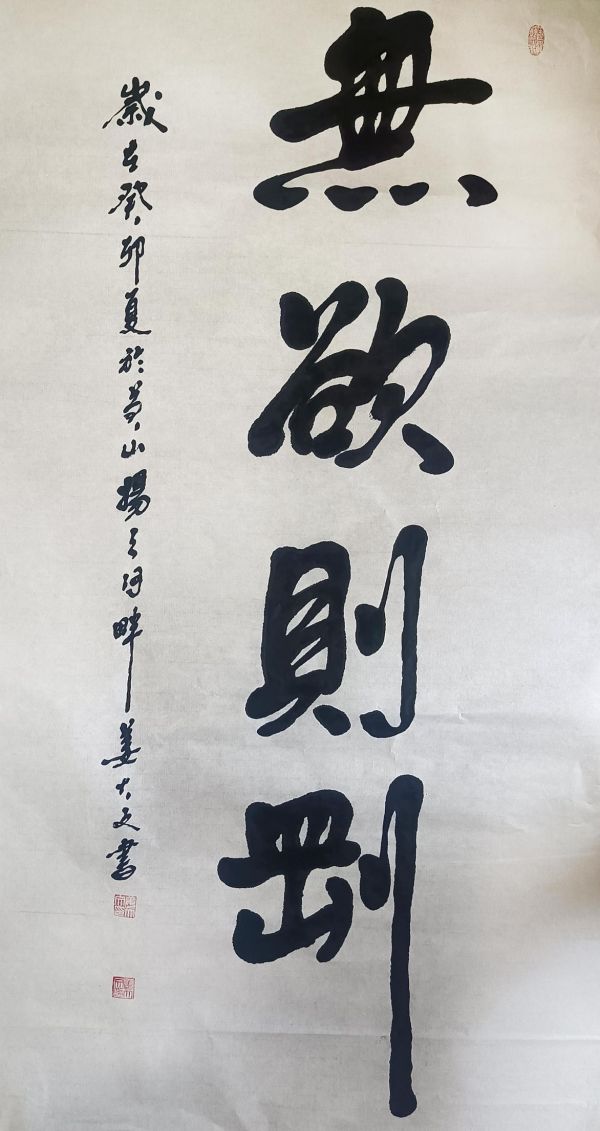 無欲則剛
歲在癸卯夏於黃山揚之河畔姜大文書